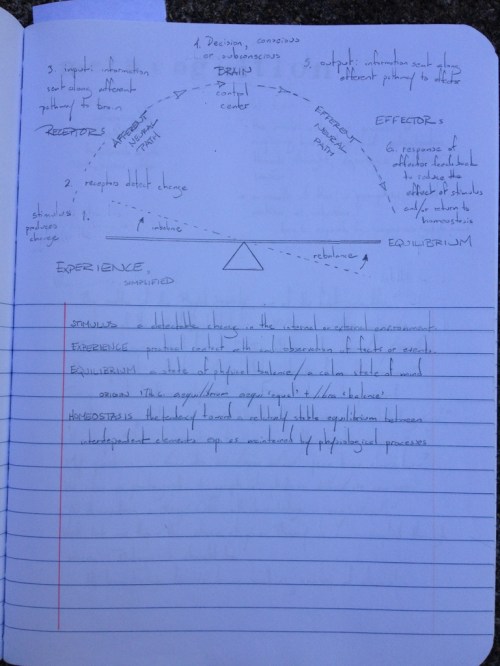 4. Decision, conscious
or subconscious
BRAIN
control
center
3. input: information
sent along afferent
pathway to brain
RECEPTORS
AFFERENT
NEURAL
PATH
5. output: information sent along
efferent pathway to effector
EFFERENT
NEURAL
PATH
EFFECTORS
6. response of
effector feeds back
to reduce the
effect of stimulus
and/or return to
homeostasis
2. receptors detect change
stimulus
produces
change
1.
imbalance
rebalance
EQUILIBRIUM
EXPERIENCE,
SIMPLIFIED
STIMULUS a detectable change in the internal or external environment.
EXPERIENCE practical contact with and observation of facts or events.
EQUILIBRIUM a state of physical balance / a calm state of mind
ORIGIN aequilibrium aequi 'equal' + libra 'balance'
HOMEOSTASIS the tendency toward a relatively stable equilibrium between
interdependent elements esp as maintained by physiological processes